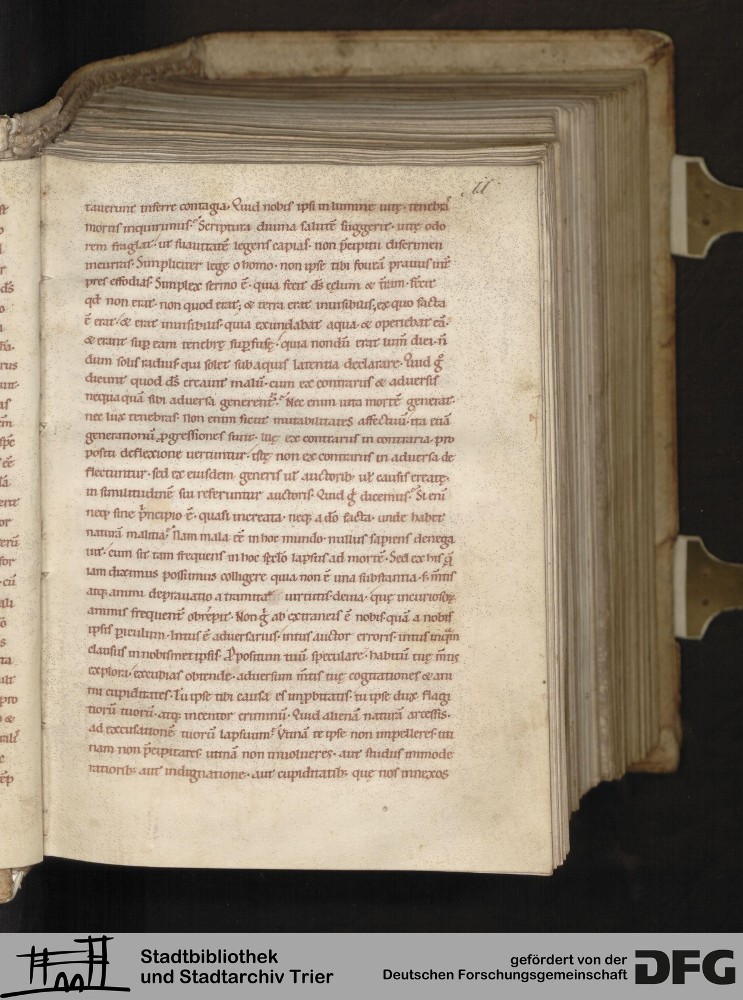 ıı
tauerunt inferre contagia. Quid nobis ipsi in lumine uitę. tenebras
mortis inquirimus? Scriptura diuina salutē suggerit. uitę odo
rem fraglat. ut suauitatē legens capias. non p̄cipitii discrimen
incurras. Simpliciter lege o homo. non ipse tibi foueā prauus int̄
pres effodias. Simplex sermo ē. quia fecit ds̄ cęlum & t̄ram. fecit
qd̄ non erat. non quod erat; & terra erat inuisibilis; ex quo facta
ē erat. & erat inuisibilis. quia exundabat aqua. & operiebat eā.
& erant sup eam tenebrę sup̄fusę. quia nondū erat lum̄ diei. n̄
dum solis radius qui solet sub aquis latentia declarare. Quid ǵ
dicunt quod ds̄ creauit malū. cum ex contrariis & aduersis
nequaquā sibi aduersa generent̄? Nec enim uita mortē generat.
nec lux tenebras. Non enim sicut mutabilitates affectuū. ita etiā
generationū ꝓgressiones sunt. Illę ex contrariis in contraria. pro
positi deflexione uertuntur. istę non ex contrariis in aduersa de
flectuntur. sed ex eiusdem generis ut auctorib; uł causis creatę.
in similitudinē sui referuntur auctoris. Quid ǵ dicemus? Si eni
neq; sine p̄ncipio ē. quasi increata. neq; a dō facta. unde habet
naturā malitia? Nam mala eē in hoc mundo. nullus sapiens denega
uit. cum sit tam frequens in hoc sęclo lapsus ad mortē. Sed ex his q̄
iam diximus possumus colligere quia non ē uina substantia. s; m̄tis
atq; animi deprauatio a tramite uirtutis deuia. quę incuriosoꝝ
animis frequent̄ obrepit. Non ǵ ab extraneis ē nobis quā a nobis
ipsis piculum. Intus ē aduersarius. intus auctor erroris. intus inquā
clausus in nobismet ipsis. Ꝓpositum tuū speculare. habitū tuę m̄tis
explora. excubias obtende. aduersum m̄tis tuę cogitationes & ani
mi cupiditates. Tu ipse tibi causa es improbitatis. tu ipse dux flagi
tiorū tuorū. atq; incentor criminū. Quid alienā naturā arcessis.
ad excusationē tuorū lapsuum? Vtinā te ipse non impelleres. uti
nam non p̄cipitares. utinā non inuolueres. aut studiis immode
ratiorib; aut indignatione. aut cupiditatib; quę nos innexos
Stadtbibliothek
und Stadtarchiv Trier
gefördert von der
Deutschen Forschungsgemeinschaft
DFG